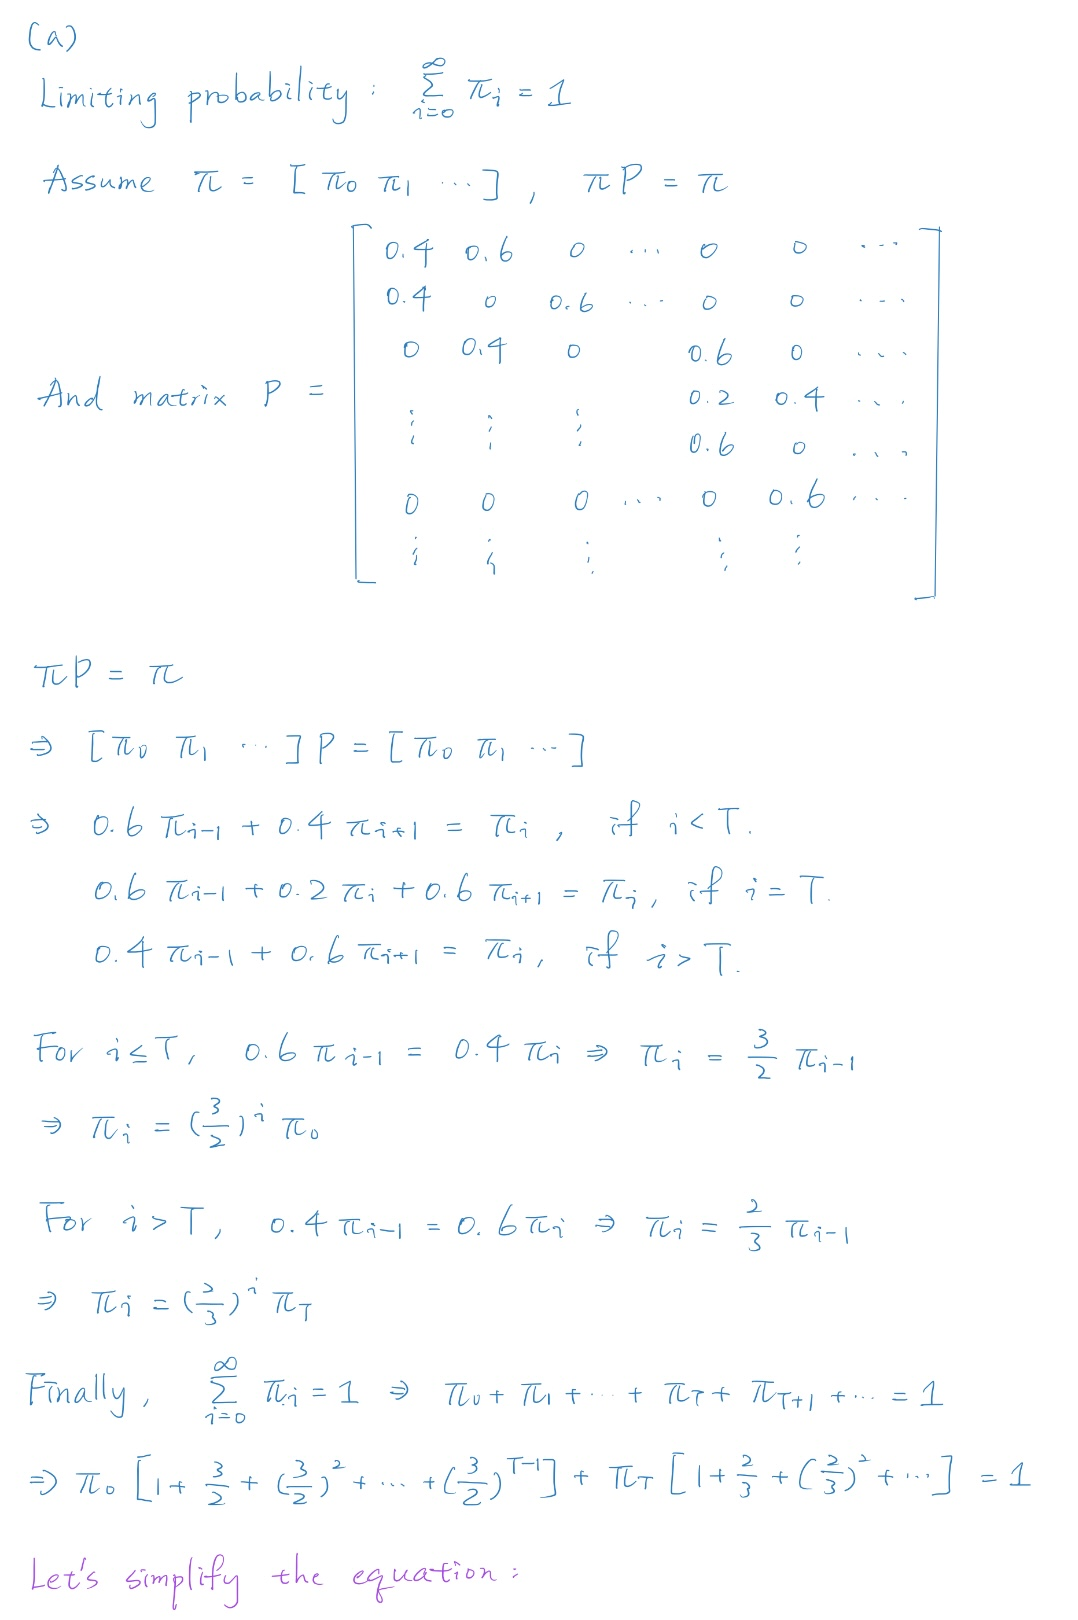 (a)
Limiting probability : ∑_{i=0}^{∞} π_i = 1
Assume π = [ π_0 π_1 ⋯ ] , π P = π
0.4 0.6 0 ⋯ 0 0 ⋯
0.4 0 0.6 ⋯ 0 0 ⋯
0 0.4 0 0.6 0 ⋯
And matrix P =
0.2 0.4 ⋯
⋮ ⋮ ⋮
0.6 0 ⋯
0 0 0 ⋯ 0 0.6 ⋯
⋮ ⋮ ⋮ ⋮ ⋮
πP = π
⇒ [ π_0 π_1 ⋯ ] P = [ π_0 π_1 ⋯ ]
⇒ 0.6 π_{i-1} + 0.4 π_{i+1} = π_i , if i < T.
0.6 π_{i-1} + 0.2 π_i + 0.6 π_{i+1} = π_i , if i = T.
0.4 π_{i-1} + 0.6 π_{i+1} = π_i , if i > T.
For i ≤ T, 0.6 π_{i-1} = 0.4 π_i ⇒ π_i = 3/2 π_{i-1}
⇒ π_i = (3/2)^i π_0
For i > T, 0.4 π_{i-1} = 0.6 π_i ⇒ π_i = 2/3 π_{i-1}
⇒ π_i = (2/3)^i π_T
Finally, ∑_{i=0}^{∞} π_i = 1 ⇒ π_0 + π_1 + ⋯ + π_T + π_{T+1} + ⋯ = 1
⇒ π_0 [ 1 + 3/2 + (3/2)^2 + ⋯ + (3/2)^{T-1} ] + π_T [ 1 + 2/3 + (2/3)^2 + ⋯ ] = 1
Let's simplify the equation :